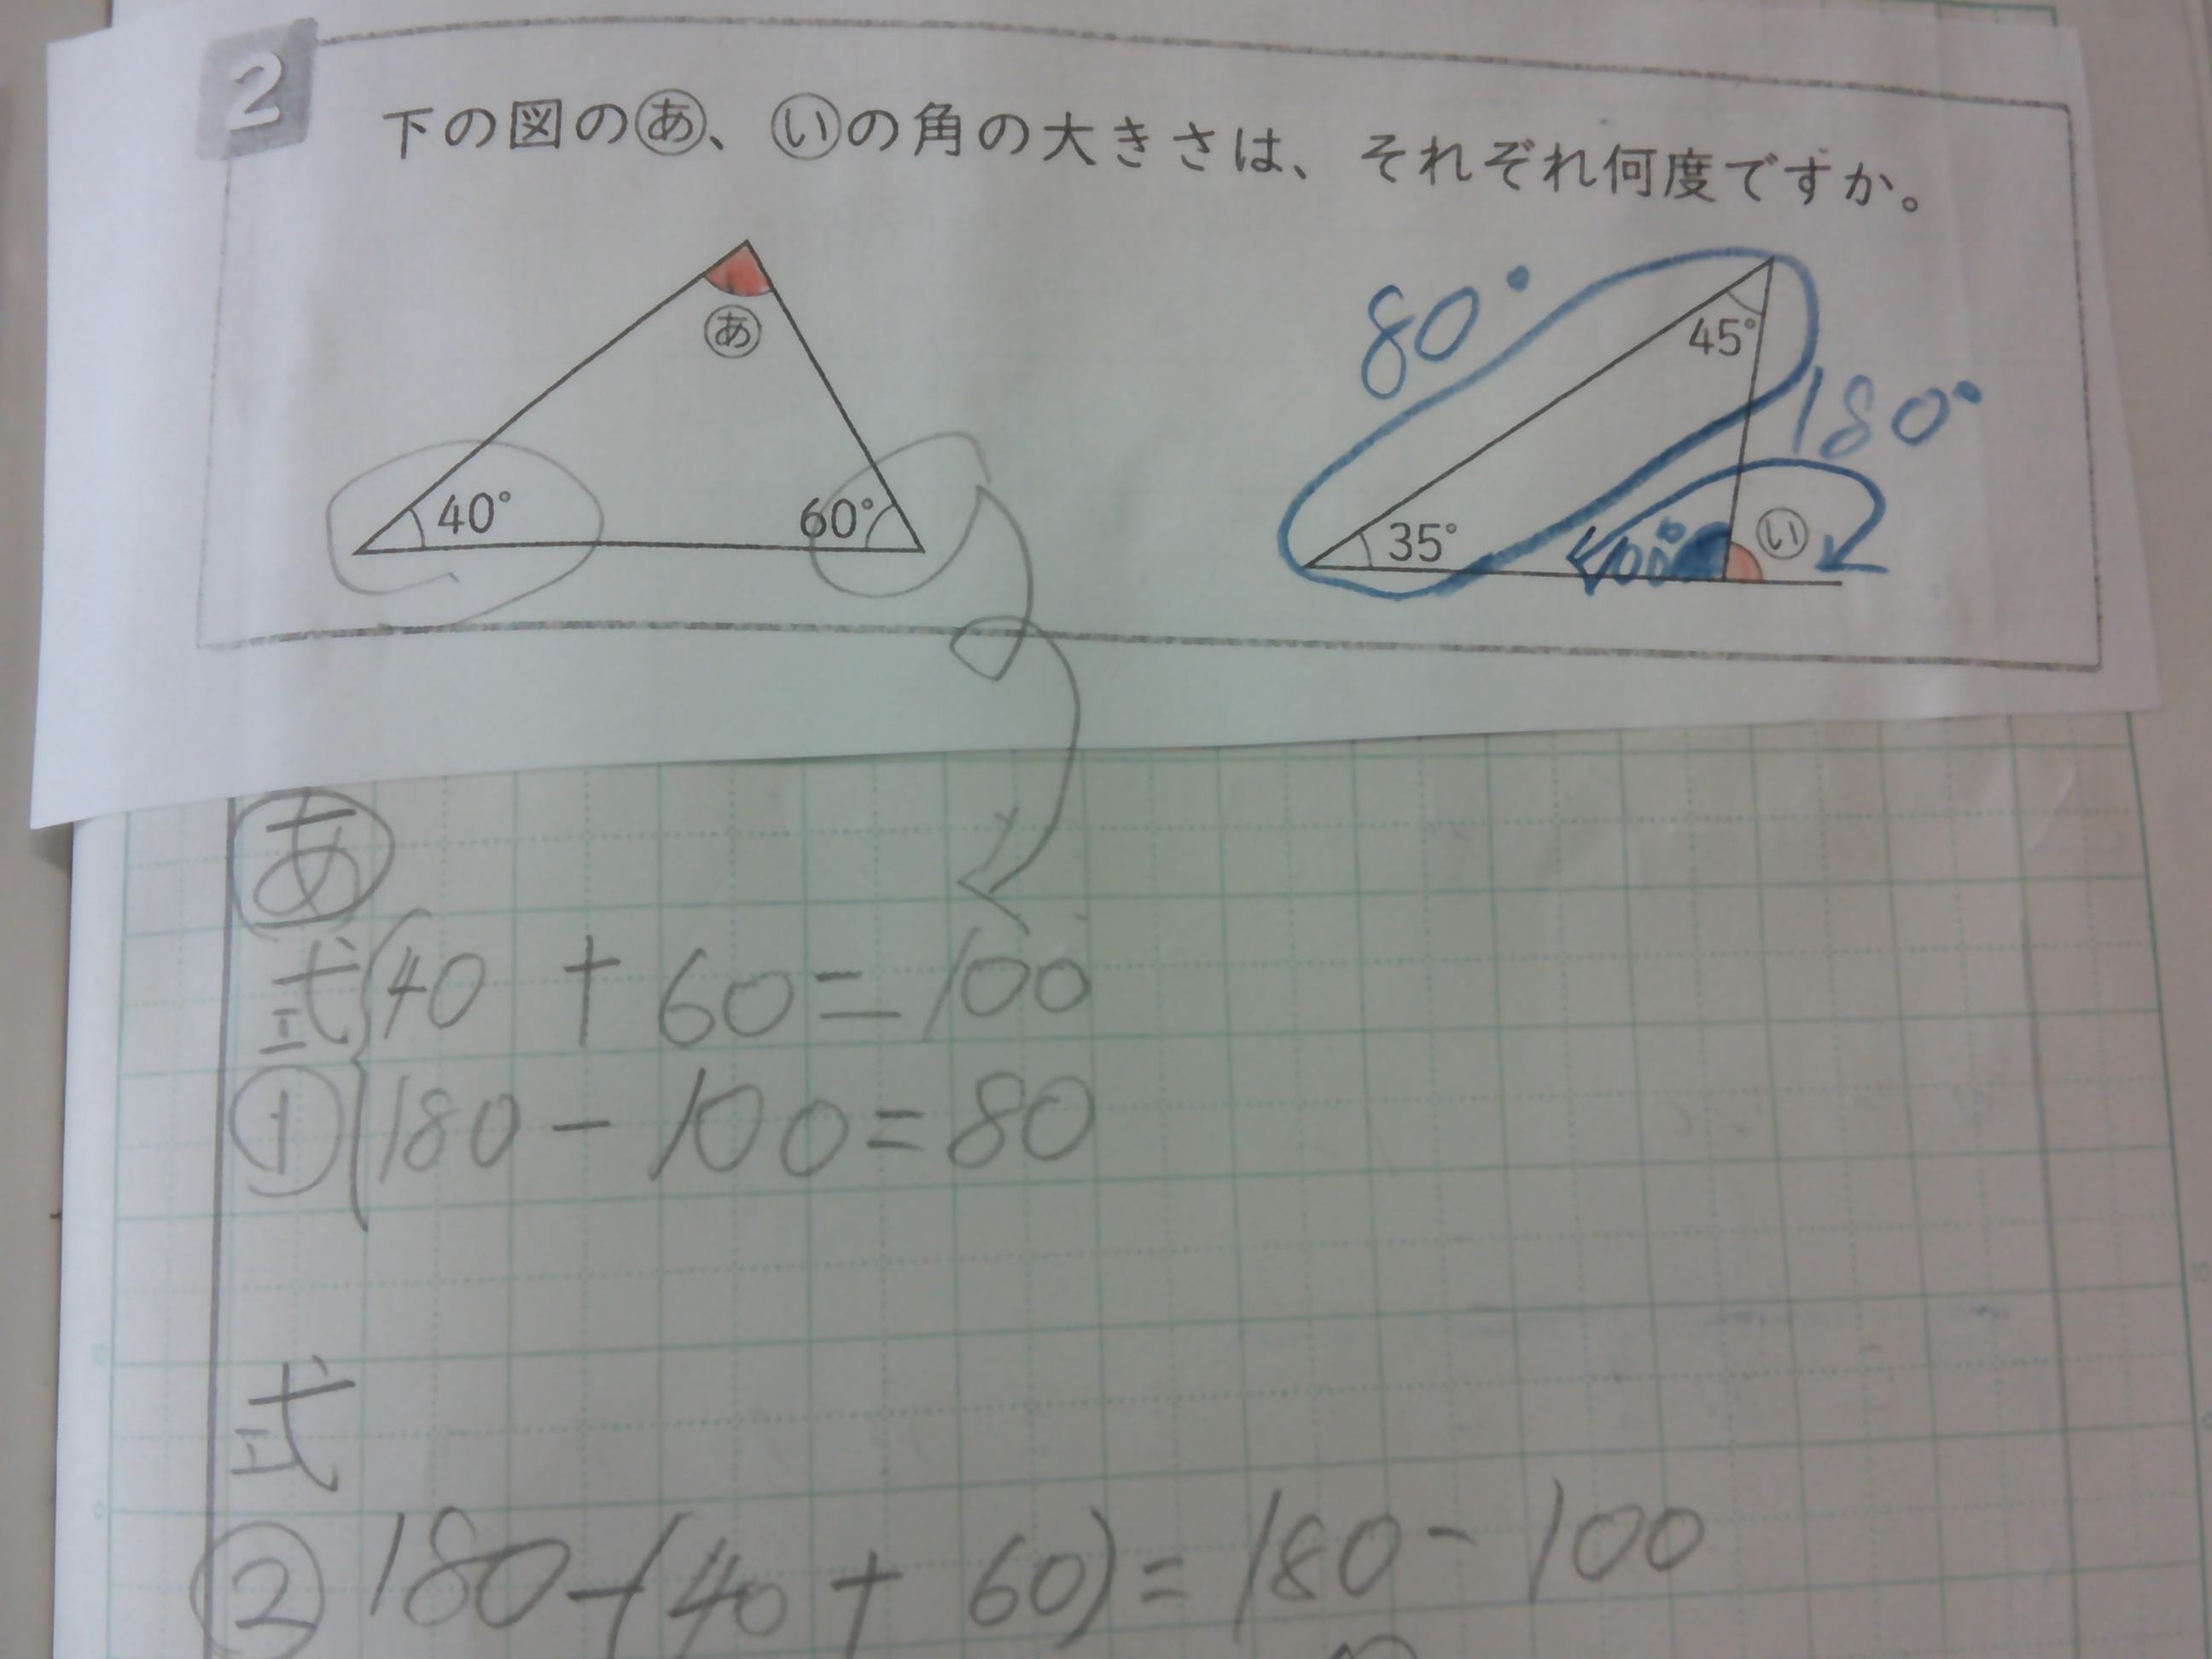 2
下の図のあ、いの角の大きさは、それぞれ何度ですか。
あ
40°
60°
80°
45°
180°
35°
100°
い
あ
式 40 + 60 = 100
① 180 - 100 = 80
式
② 180 - (40 + 60) = 180 - 100